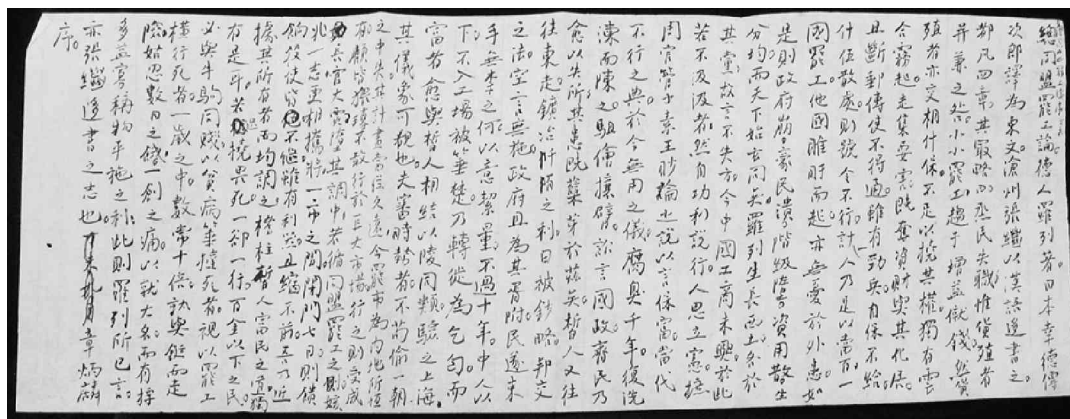 總同盟罷工論德人羅列著日本幸德傳
次郎譯為東文滄州張繼以漢語逶書之
都凡四章其最略曰烝民失職惟貨殖者
并兼之咎小小罷工趨于增益傭錢然貨
殖者亦交相什保不足以撓其權獨有雲
合霧起走集要害既奪資財與其化居
且斷郵傳使不得通雖有勁兵自保不給
什伍散處則號令不行計人乃足以當百一
國罷工他國睢盱而起亦無憂於外患如
是則政府崩豪民潰階級墮資用散生
分均而天下始玄同矣羅列生長西土為於
其黨故言不失方今中國工商未興於此
若不及汲者然自功利說行人思立憲摭
周官管子素王眇論之說以言保富當代
不行之典於今無用之儀腐臭千年復洗
湅而陳之駔儈攘臂訟言國政齊民乃
愈以失所其患既櫱芽於茲矣哲人又往
往東走鑛冶阡陌之利日被鈔略邦交
之法空言無施政府且為其胥附民遂束
手無奈之何以意絜量不過十年中人以
下不入工場被箠楚乃轉徙為乞匄而
富者愈與哲人相結以陵同類驗之上海
其儀象可覩也夫審時勢者不苟偷一朝
之中失其計畫當在久遠今罷市為內地所恒
有顧皆撲遫不敢行於巨大市場行之則交成
長官大賈陰其調中若彼同盟罷工之則媛
兆一志更相攜將一市之間閉門七日則饋
餉役使皆不繼雖有利器且縮不前吾乃近
據其所有者而均調之榰柱哲人富民之道獨
有是耳若撓畏死一卻一行百金以下之民
必與牛駒同賤以貧病箠撻死者視以罷工
橫行死者一歲之中數常十倍孰與鋌而走
險姑忍數日之餓一創之痛以就大名而有捊
多益寡稱物平施之利此則羅列所已言
亦張繼逶書之志也 章炳麟
序